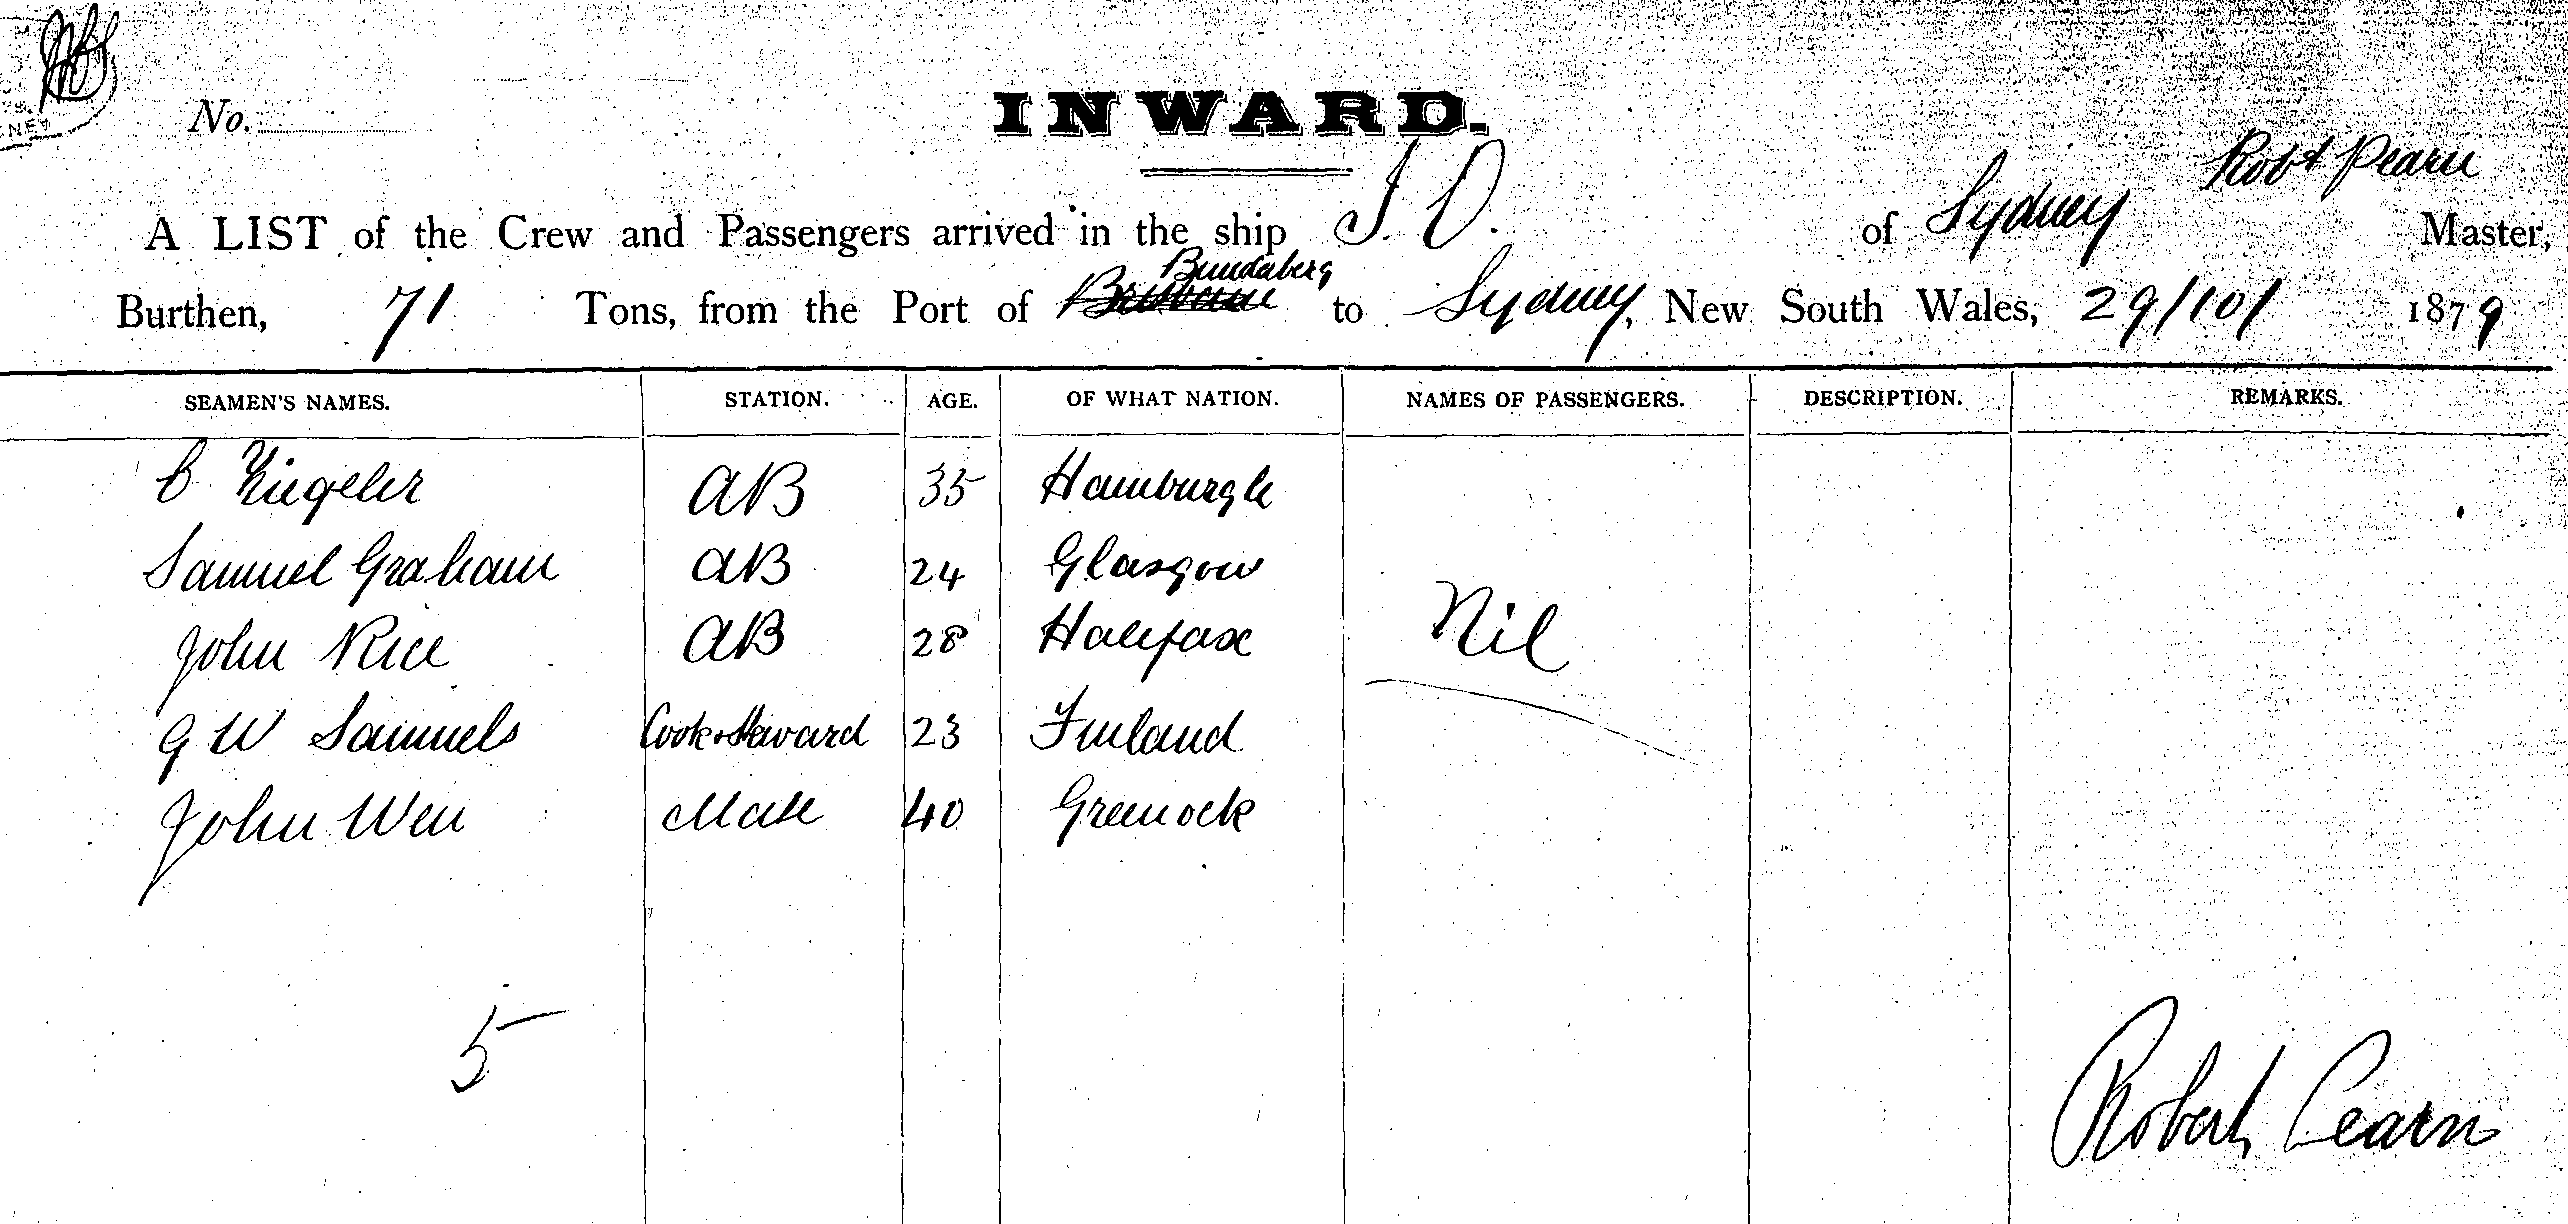 No.
INWARD.
Robt Pearn
A LIST of the Crew and Passengers arrived in the ship J. O. of Sydney Master,
Bundaberg
Burthen, 71 Tons, from the Port of Brisbane to Sydney, New South Wales, 29/10/ 1879
SEAMEN'S NAMES. STATION. AGE. OF WHAT NATION. NAMES OF PASSENGERS. DESCRIPTION. REMARKS.
C Ziegeler AB 35 Hamburgh
Samuel Graham AB 24 Glasgow
John Rice AB 28 Halifax
Nil
G W Samuels Cook & Steward 23 Finland
John Mate 40 Greenock
5
Robert Pearn